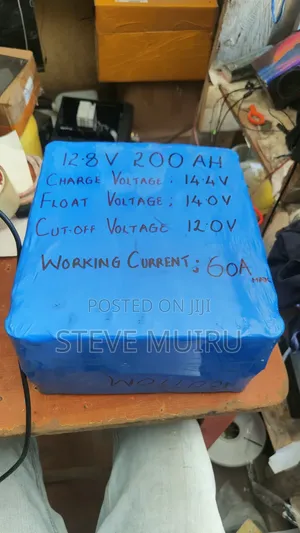 12.8V 200AH
CHARGE VOLTAGE: 14.4V
FLOAT VOLTAGE: 14.0V
CUT-OFF VOLTAGE 12.0V
WORKING CURRENT: 60A
POSTED ON JIJI
STEVE MUIRU
BOTTOM